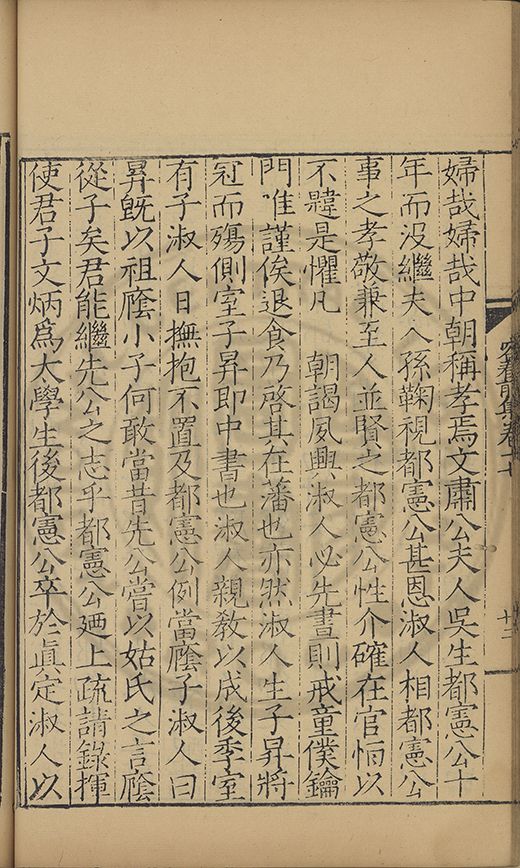 婦哉婦哉中朝稱孝焉文肅公夫人吳生都憲公十
年而没繼夫人孫鞠視都憲公甚恩淑人相都憲公
事之孝敬兼至人並賢之都憲公性介確在官恒以
不韙是懼凡 朝謁夙興淑人必先晝則戒童僕鑰
門唯謹俟退食乃啓其在藩也亦然淑人生子昇將
冠而殤側室子昇即中書也淑人親教以成後季室
有子淑人日撫抱不置及都憲公例當廕子淑人曰
昇旣以祖廕小子何敢當昔先公嘗以姑氏之言廕
從子矣君能繼先公之志乎都憲公廼上疏請錄揮
使君子文炳爲大學生後都憲公卒於眞定淑人以